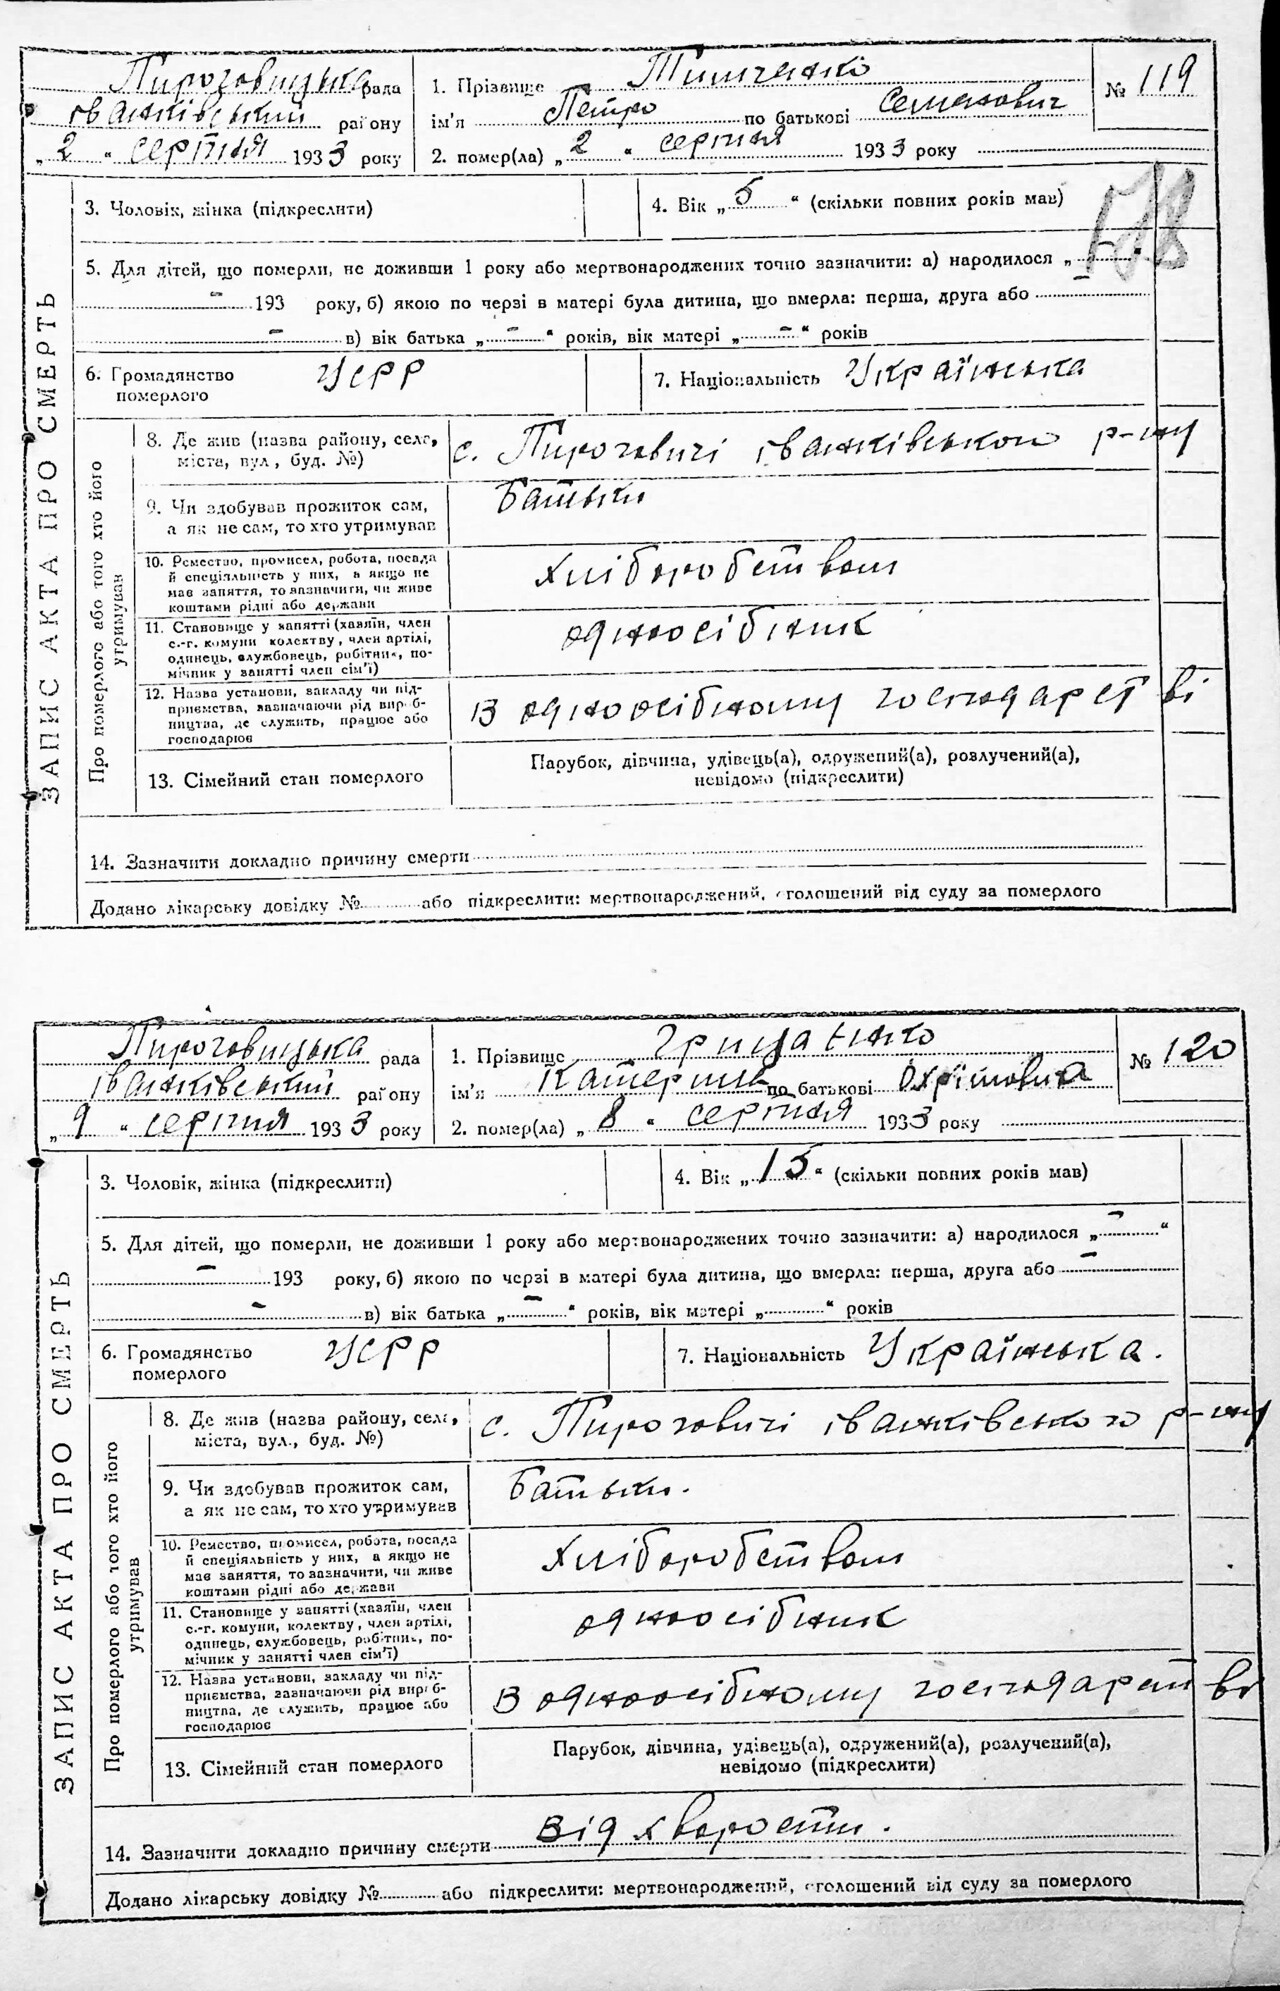 Пироговицька рада
іванківський району
„2“ серпня 1933 року
1. Прізвище Тимченко
ім'я Петро по батькові Семенович
2. помер(ла) „2“ серпня 1933 року
№ 119
3. Чоловік, жінка (підкреслити)
4. Вік „5“ (скільки повних років мав)
5. Для дітей, що померли, не доживши 1 року або мертвонароджених точно зазначити: а) народилося „
- 193 року, б) якою по черзі в матері була дитина, що вмерла: перша, друга або -
- в) вік батька „-“ років, вік матері „-“ років
6. Громадянство
померлого
УСРР
7. Національність Українська
ЗАПИС АКТА ПРО СМЕРТЬ
Про померлого або того хто його
утримував
8. Де жив (назва району, села,
міста, вул., буд. №)
с. Пироговичі іванківського р-ну
9. Чи здобував прожиток сам,
а як не сам, то хто утримував
Батьки
10. Ремество, промисел, робота, посада
й спеціяльність у них, а якщо не
мав заняття, то зазначити, чи живе
коштами рідні або держави
Хліборобством
11. Становище у занятті (хазяїн, член
с.-г. комуни колективу, член артілі,
одинець, службовець, робітник, по-
мічник у занятті член сім'ї)
одноосібник
12. Назва установи, закладу чи під-
приємства, зазначаючи рід вироб-
ництва, де служить, працює або
господарює
В одноосібному господарстві
13. Сімейний стан померлого
Парубок, дівчина, удівець(а), одружений(а), розлучений(а),
невідомо (підкреслити)
14. Зазначити докладно причину смерти
Додано лікарську довідку № або підкреслити: мертвонароджений, оголошений від суду за померлого
Пироговицька рада
іванківський району
„9“ серпня 1933 року
1. Прізвище Грищенко
ім'я Катерина по батькові Охрімовна
2. помер(ла) „8“ серпня 1933 року
№ 120
3. Чоловік, жінка (підкреслити)
4. Вік „15“ (скільки повних років мав)
5. Для дітей, що померли, не доживши 1 року або мертвонароджених точно зазначити: а) народилося „-“
- 193 року, б) якою по черзі в матері була дитина, що вмерла: перша, друга або -
- в) вік батька „-“ років, вік матері „“ років
6. Громадянство
померлого
УСРР
7. Національність Українська.
ЗАПИС АКТА ПРО СМЕРТЬ
Про померлого або того хто його
утримував
8. Де жив (назва району, села,
міста, вул., буд. №)
с. Пироговичі іванківського р-ну
9. Чи здобував прожиток сам,
а як не сам, то хто утримував
Батьки.
10. Ремество, промисел, робота, посада
й спеціяльність у них, а якщо не
мав заняття, то зазначити, чи живе
коштами рідні або держави
Хліборобством
11. Становище у занятті (хазяїн, член
с.-г. комуни, колективу, член артілі,
одинець, службовець, робітник, по-
мічник у занятті член сім'ї)
одноосібник
12. Назва установи, закладу чи під-
приємства, зазначаючи рід вироб-
ництва, де служить, працює або
господарює
В одноосібному господарстві
13. Сімейний стан померлого
Парубок, дівчина, удівець(а), одружений(а), розлучений(а),
невідомо (підкреслити)
14. Зазначити докладно причину смерти від хворости.
Додано лікарську довідку № або підкреслити: мертвонароджений, оголошений від суду за померлого